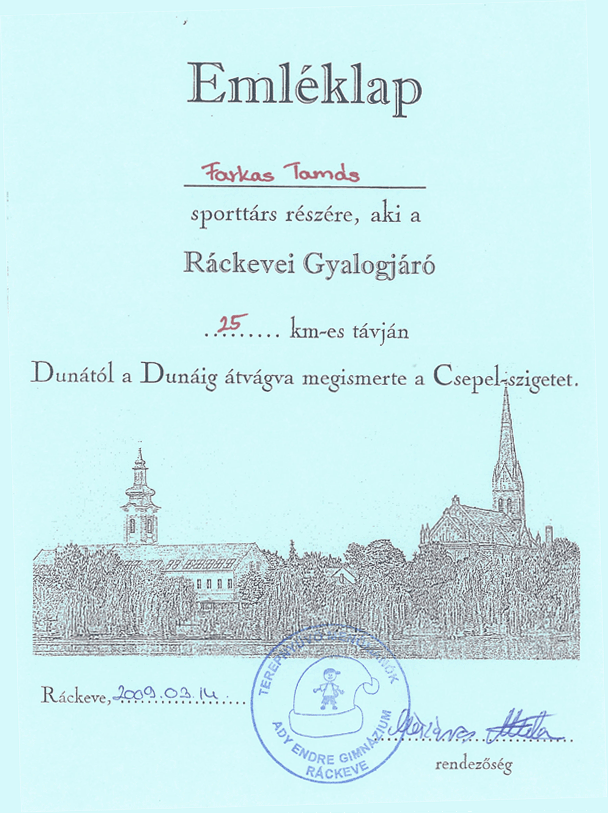 Emléklap
Farkas Tamás
sporttárs részére, aki a
Ráckevei Gyalogjáró
25 km-es távján
Dunától a Dunáig átvágva megismerte a Csepel-szigetet.
Ráckeve, 2009.03.14.
ADY ENDRE GIMNÁZIUM
RÁCKEVE
Attila
rendezőség